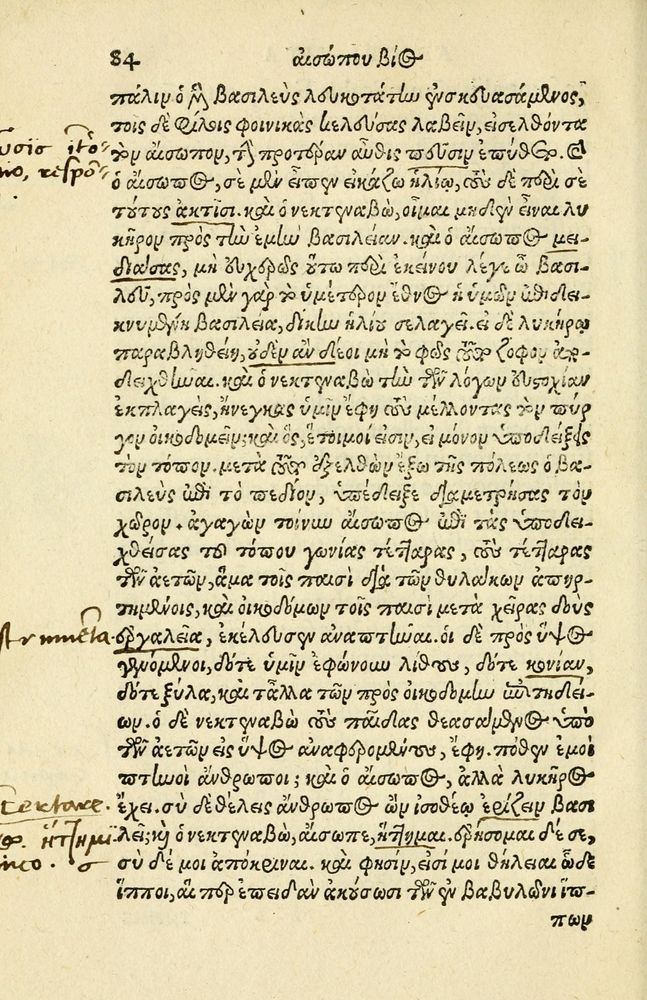 84 αἰσώπου βίος
πάλιν ὁ μὲν βασιλεὺς λευκοτάτην ἐνσκευασάμενος,
τοῖς δὲ φίλοις φοινικᾶς κελεύσας λαβεῖν, εἰσελθόντα
τὸν αἴσωπον, τὴν προτέραν αὖθις πεῦσιν ἐπύθετο. καὶ
ὁ αἴσωπος, σὲ μὲν εἶπεν εἰκάζω ἡλίῳ, τοὺς δὲ περὶ σὲ
τούτους ἀκτῖσι. καὶ ὁ νεκτεναβὼ, οἶμαι μηδὲν εἶναι λυ
κῆρον πρὸς τὴν ἐμὴν βασιλείαν. καὶ ὁ αἴσωπος μει-
διάσας, μὴ εὐχερῶς οὕτω περὶ ἐκείνου λέγε ὦ βασι-
λεῦ, πρὸς μὲν γὰρ τὸ ὑμέτερον ἔθνος ἡ ὑμῶν ἐπιδει-
κνυμένη βασιλεία, δίκην ἡλίου σελαγεῖ. εἰ δὲ λυκήρῳ
παραβληθείη, οὐδὲν ἂν δέοι μὴ τὸ φῶς τοῦτο ζόφον ἀπο-
δειχθῆναι. καὶ ὁ νεκτεναβὼ τὴν τῶν λόγων εὐστοχίαν
ἐκπλαγεὶς, ἤνεγκας ἡμῖν ἔφη τοὺς μέλλοντας τὸν πύρ
γον οἰκοδομεῖν; καὶ ὃς, ἕτοιμοί εἰσιν, εἰ μόνον ὑποδείξεις
τὸν τόπον. μετὰ τοῦτο ἐξελθὼν ἔξω τῆς πόλεως ὁ βα-
σιλεὺς ἐπὶ τὸ πεδίον, ὑπέδειξε διαμετρήσας τὸν
χῶρον. ἀγαγὼν τοίνυν αἴσωπος ἐπὶ τὰς ὑποδει-
χθείσας τοῦ τόπου γωνίας τέτταρας, τοὺς τέτταρας
τῶν ἀετῶν, ἅμα τοῖς παισὶ διὰ τῶν θυλάκων ἀπηρ-
τημένοις, καὶ οἰκοδόμων τοῖς παισὶ μετὰ χεῖρας δοὺς
ἐργαλεῖα, ἐκέλευσεν ἀναπτῆναι. οἱ δὲ πρὸς ὕψος
γενόμενοι, δότε ἡμῖν ἐφώνουν λίθους, δότε κονίαν,
δότε ξύλα, καὶ τἄλλα τῶν πρὸς οἰκοδομὴν ἐπιτηδεί-
ων. ὁ δὲ νεκτεναβὼ τοὺς παῖδας θεασάμενος ὑπὸ
τῶν ἀετῶν εἰς ὕψος ἀναφερομένους, ἔφη. πόθεν ἐμοὶ
πτηνοὶ ἄνθρωποι; καὶ ὁ αἴσωπος, ἀλλὰ λυκῆρος
ἔχει. σὺ δὲ θέλεις ἄνθρωπος ὢν ἰσοθέῳ ἐρίζειν βασι
λεῖ; καὶ ὁ νεκτεναβὼ, αἴσωπε, ἥττημαι. ἐρήσομαι δέ σε,
σὺ δέ μοι ἀπόκριναι. καὶ φησὶν, εἰσί μοι θήλειαι ὧδε
ἵπποι, αἵ περ ἐπειδὰν ἀκούσωσι τῶν ἐν βαβυλῶνι ἵπ-
πων